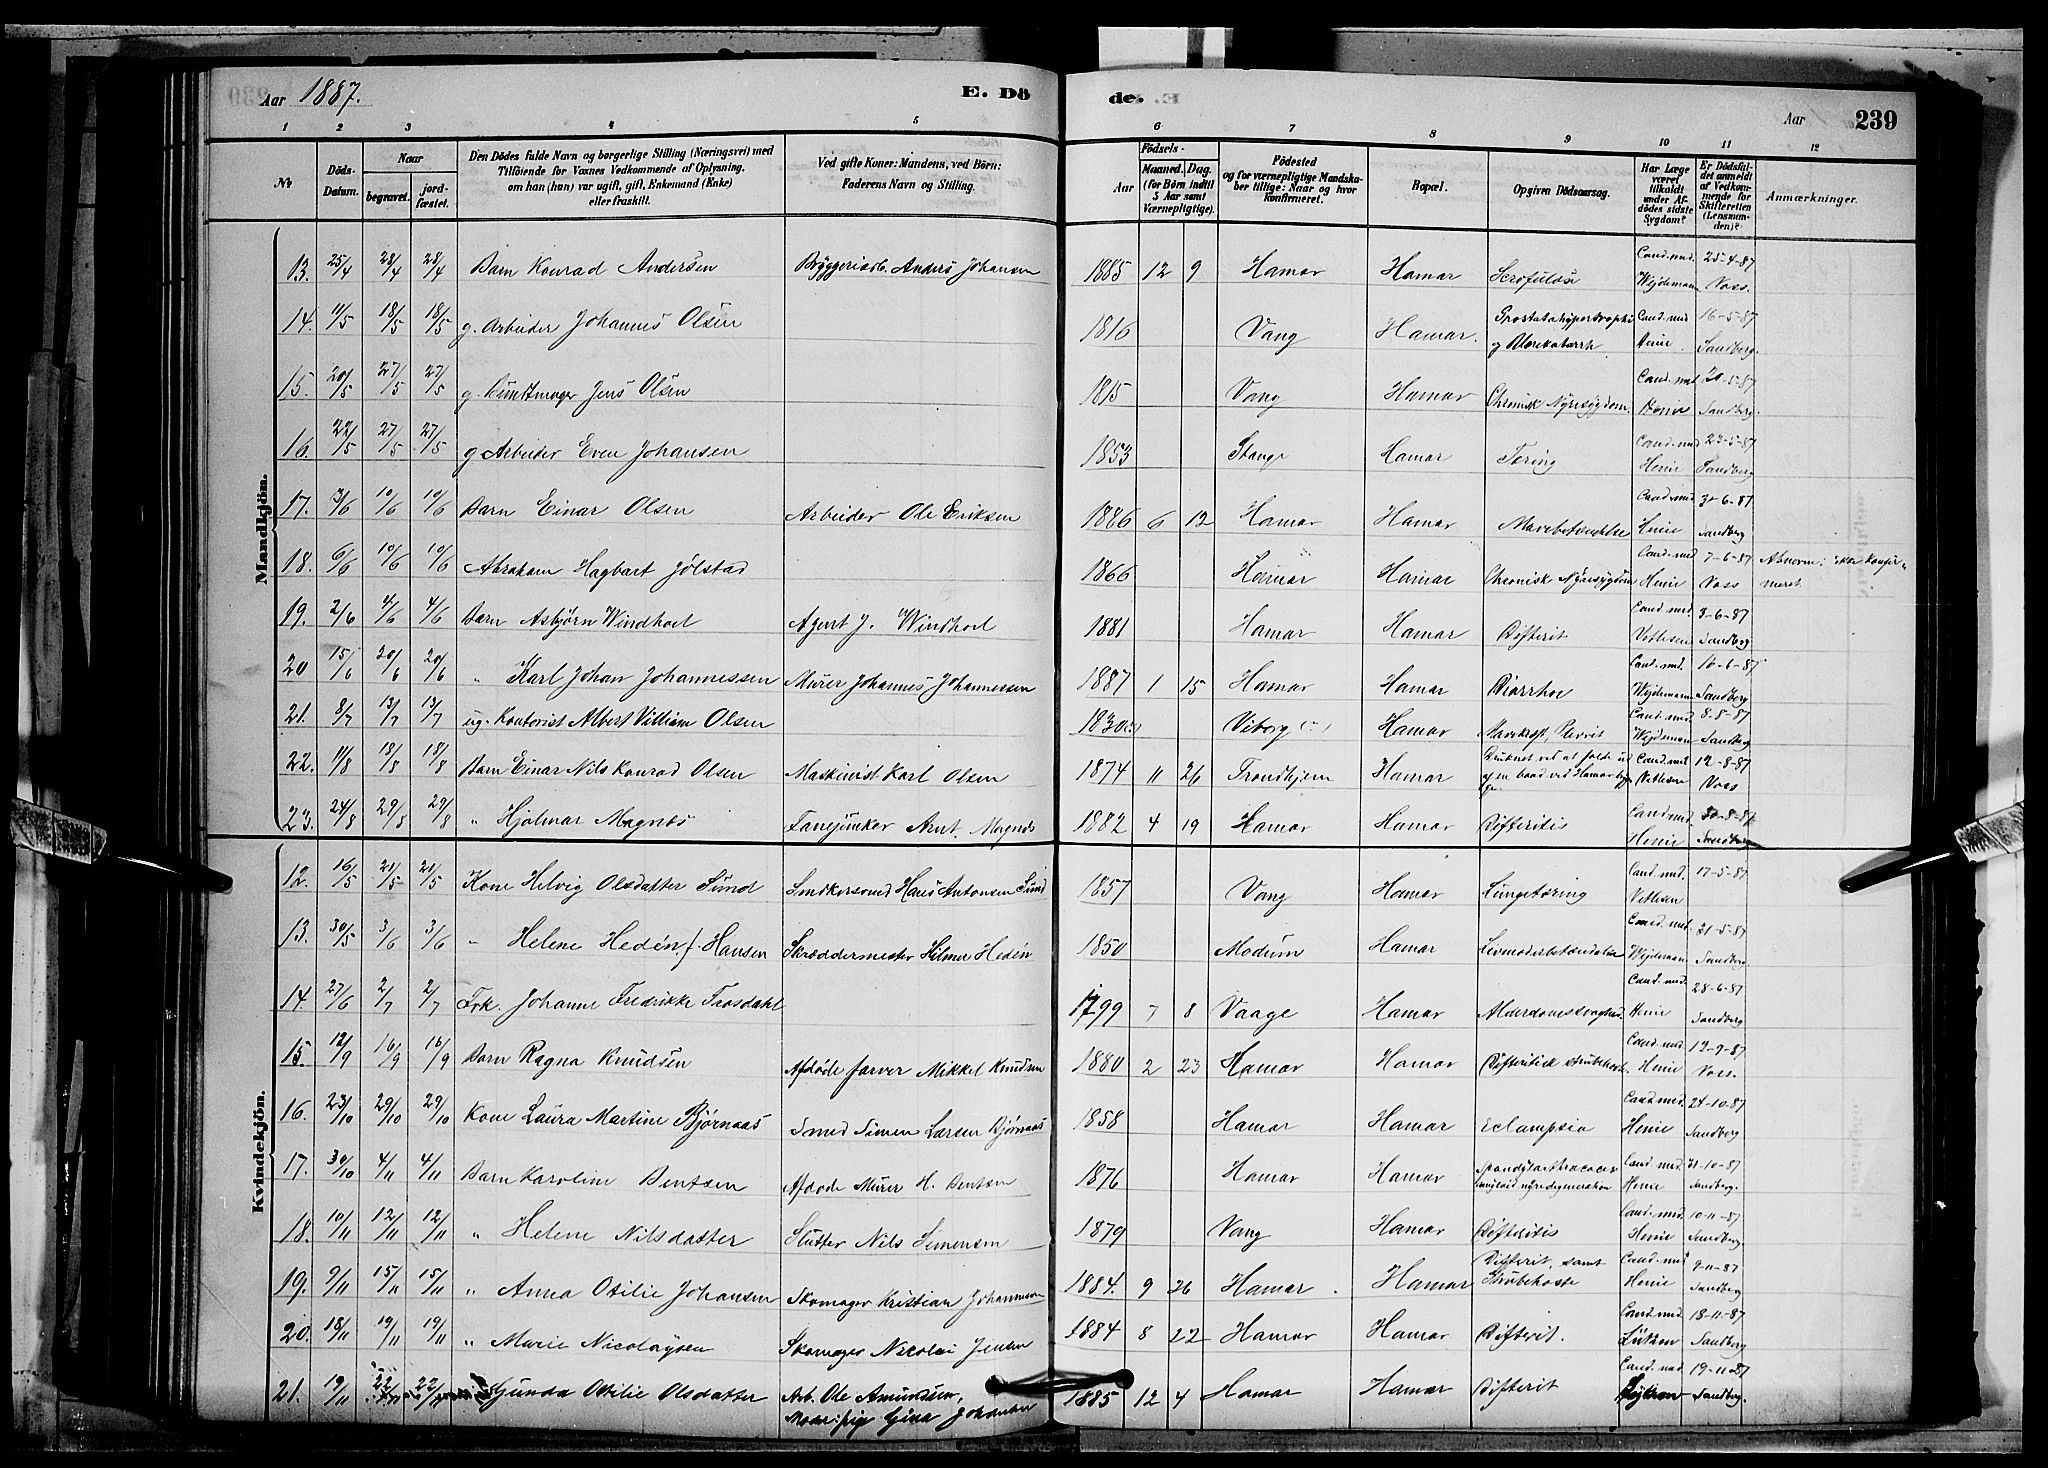 Aar 1887. E. Dö de. Aar 239
1 2 3 4 5 6 7 8 9 10 11 12
№ Döds-Datum. Naar begravet. jordfæstet. Den Dödes fulde Navn og borgerlige Stilling (Næringsvei) med Tilföiende for Voxnes Vedkommende af Oplysning, om han (hun) var ugift, gift, Enkemand (Enke) eller fraskilt. Ved gifte Koner: Mandens, ved Börn: Faderens Navn og Stilling. Födsels- Aar Maaned. Dag. (for Börn indtil 5 Aar samt Værnepligtige). Födested og for værnepligtige Mandskaber tillige: Naar og hvor konfirmeret. Bopæl. Opgiven Dödsaarsag. Har Læge været tilkaldt under Afdödes sidste Sygdom? Er Dödsfaldet anmeldt af Vedkommende for Skifteretten (Lensmanden)? Anmærkninger.
Mandkjön.
13. 25/4 28/4 28/4 Barn Konrad Andersen Bryggeriarb. Anders Johansen 1885 12 9 Hamar Hamar Scrofuløse Cand. med. Wejdemann 25-4-87 Voss.
14. 11/5 18/5 18/5 g. Arbeider Johannes Olsen 1816 Vang Hamar. Prostatahypertrophi og Blærekatarrh Cand. med Henie. 16-5-87 Sandberg.
15. 20/5 27/5 27/5 g. Buntmager Jens Olsen 1815 Vang Hamar Chronisk Nyresygdom. Cand. med Henie 20-5-87 Sandberg.
16. 22/5 27/5 27/5 g Arbeider Even Johansen 1853 Stange Hamar Tæring Cand. med Henie 23-5-87 Sandberg
17. 3/6 10/6 10/6 Barn Einar Olsen Arbeider Ole Eriksen 1886 6 12 Hamar Hamar Mavebetændelse Cand. med Henie 3-6-87 Sandberg
18. 6/6 10/6 10/6 Abraham Hagbart Jølstad 1866 Hamar Hamar Chronisk Nyresygdom Cand. med Henie 7-6-87 Voss Abnorm; ikke konfirmeret.
19. 2/6 4/6 4/6 Barn Asbjørn Windhoel Agent J. Windhoel 1881 Hamar Hamar Difterit Cand. med. Vetlesen 3-6-87 Sandberg
20 15/6 20/6 20/6 " Karl Johan Johannessen Murer Johannes Johannessen 1887 1 15 Hamar Hamar Diarrhoe Cand. med. Wejdemann 16-6-87 Sandberg
21. 8/7 13/7 13/7 ug. Kontorist Albert Villiam Olsen 1830 Viborg Hamar Mavekræft, Cand. med. Wejdeman 8-8-87 Sandberg
22. 11/8 18/8 18/8 Barn Einar Nils Konrad Olsen Maskinist Karl Olsen 1874 11 26 Trondhjem Hamar Druknet ved at falde ud af en baad ved Hamar brygge. Cand. med Vetlesen 12-8-87 Voss
23. 24/8 29/8 29/8 " Hjalmar Magnæs Fanejunker Arnt. Magnæs 1882 4 19 Hamar Hamar Difteritis Cand. med. Henie 30-8-87 Sandberg
Kvindekjön.
12. 16/5 21/5 21/5 Kone Helvig Olsdatter Sund Snedkersvend Hans Antonsen Sund 1857 Vang Hamar Lungetæring Cand. med. Vetlesen 17-5-87
13. 30/5 3/6 3/6 " Helene Hedén f. Hansen Skræddermester Hilmer Hedén 1850 Modum Hamar Livmoderbetændelse Cand. med. Wejdemann 31-5-87 Sandberg.
14. 27/6 2/7 2/7 Frk. Johanne Fredrikke Frosdahl 1799 7 8 Vaage Hamar Alderdomssvaghed. Cand. med. Henie 28-6-87 Sandberg
15. 12/9 16/9 16/9 Barn Ragna Knudsen Afdøde farver Mikkel Knudsen 1880 2 23 Hamar Hamar Difteritisk strubehoste. Cand. med. Henie 13-9-87 Voss.
16. 23/10 29/10 29/10 Kone Laura Martine Bjørnaas Smed Simen Larsen Bjørnaas 1858 Hamar Hamar Eclampsia Cand. med. Henie 24-10-87 Sandberg
17. 30/10 4/11 4/11 Barn Karoline Bentsen Afdøde Murer H. Bentsen 1876 Hamar Hamar amyloid nyredegeneration Cand. med. Henie 31-10-87 Sandberg.
18. 10/11 12/11 12/11 " Helene Nilsdatter Slutter Nils Semensen 1879 Vang Hamar Difteritis Cand. med Henie 10-11-87 Sandberg.
19. 9/11 15/11 15/11 " Anna Otilie Johansen Skomager Kristian Johannesen 1884. 9 26 Hamar. Hamar Difterit, samt Strubehoste Cand. med Henie 9-11-87 Sandberg
20. 18/11 19/11 19/11 " Marie Nicolaysen Skomager Nicolai Jensen 1884 8 22 Hamar Hamar Difterit. Cand. med. Lütken 18-11-87 Sandberg
21. 19/11 22/11 22/11 Gunda Otilie Olsdatter Arb. Ole Amundsen, Moder: pige Gina Johansen 1885 12 4 Hamar Hamar Difterit Cand. med Lütken 19-11-87 Sandberg.